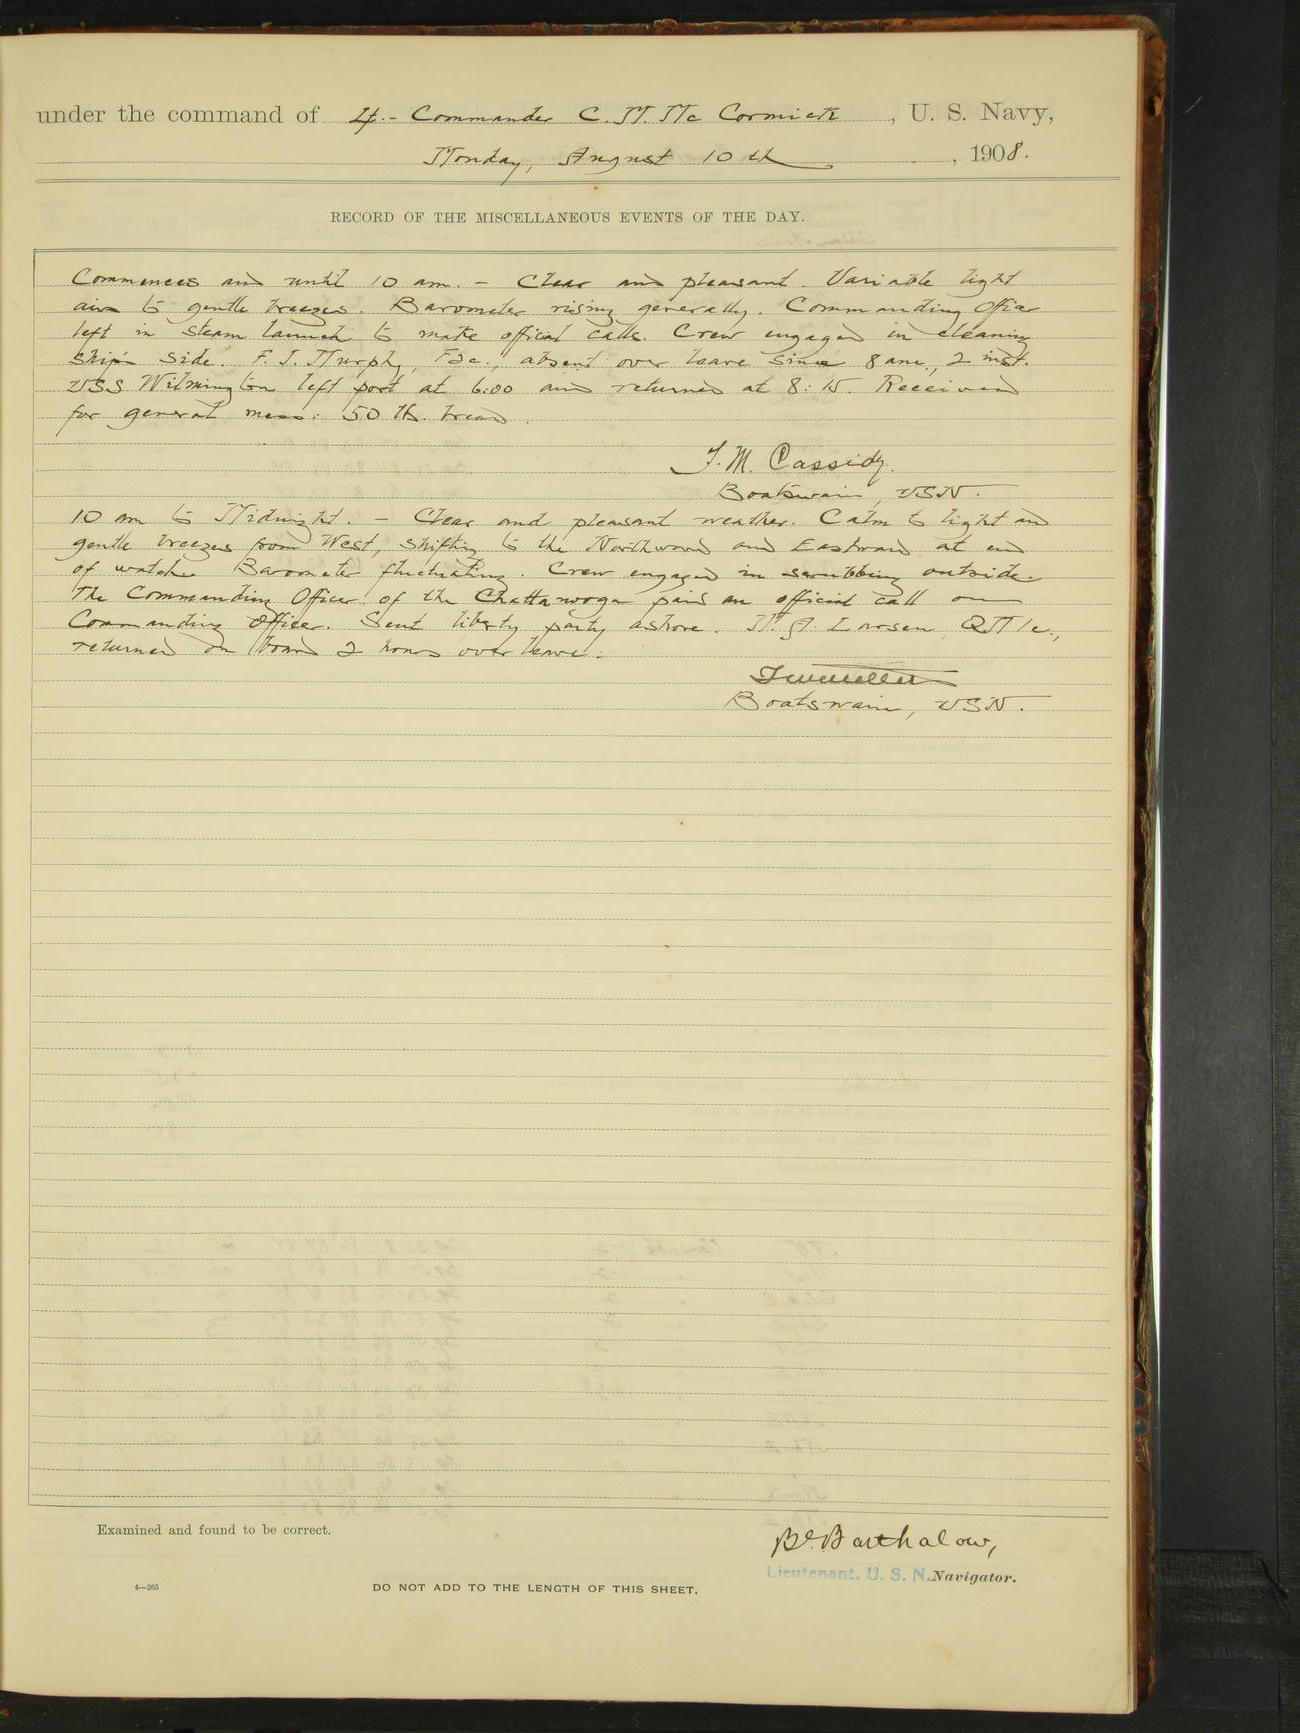 under the command of Lt.- Commander C. M. Mc Cormick, U. S. Navy,
Monday, August 10th, 1908.
RECORD OF THE MISCELLANEOUS EVENTS OF THE DAY.
Commences and until 10 am. - Clear and pleasant. Variable light
airs to gentle breezes. Barometer rising generally. Commanding Officer
left in steam launch to make official calls. Crew engaged in cleaning
ship's side. F. J. Murphy, F2c., absent over leave since 8 am., 2 inst.
USS Wilmington left port at 6:00 and returned at 8:15. Received
for general mess: 50 lb. bread.
J. M. Cassidy.
Boatswain, USN.
10 am to Midnight. - Clear and pleasant weather. Calm to light and
gentle breezes from West, shifting to the Northward and Eastward at end
of watch. Barometer fluctuating. Crew engaged in scrubbing outside.
The Commanding Officer of the Chattanooga paid an official call on
Commanding Officer. Sent liberty party ashore. Larsen, QM1c.,
returned on board 2 hours over leave.
Boatswain, USN.
Examined and found to be correct.
Barthalow,
Lieutenant. U. S. N. Navigator.
4—265
DO NOT ADD TO THE LENGTH OF THIS SHEET.